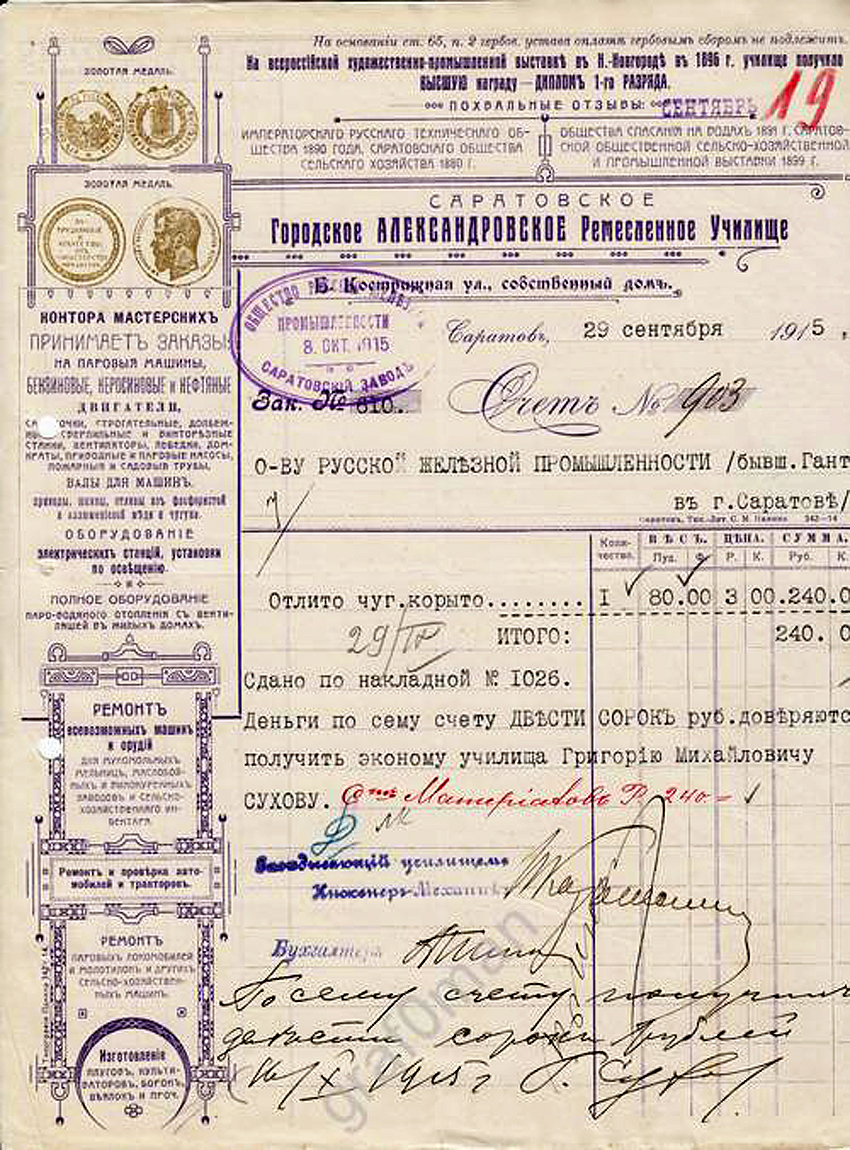 На основаніи ст. 65, п. 2 гербов. устава оплатѣ гербовымъ сборомъ не подлежитъ.
На всероссійской художественно-промышленной выставкѣ въ Н.-Новгородѣ въ 1896 г. училище получило
ВЫСШУЮ награду — ДИПЛОМЪ 1-го РАЗРЯДА.
ПОХВАЛЬНЫЕ ОТЗЫВЫ:
СЕНТЯБРЬ 19
ИМПЕРАТОРСКАГО РУССКАГО ТЕХНИЧЕСКАГО ОБ-
ЩЕСТВА 1890 ГОДА, САРАТОВСКАГО ОБЩЕСТВА
СЕЛЬСКАГО ХОЗЯЙСТВА 1880 Г.
ОБЩЕСТВА СПАСАНІЯ НА ВОДАХЪ 1891 Г. САРАТОВ-
СКОЙ ОБЩЕСТВЕННОЙ СЕЛЬСКО-ХОЗЯЙСТВЕННОЙ
И ПРОМЫШЛЕННОЙ ВЫСТАВКИ 1899 Г.
ЗОЛОТАЯ МЕДАЛЬ.
ЗОЛОТАЯ МЕДАЛЬ.
ЗА
ТРУДОЛЮБІЕ
И
ИСКУССТВО
САРАТОВСКОЕ
Городское АЛЕКСАНДРОВСКОЕ Ремесленное Училище
Б. Кострижная ул., собственный домъ.
ОБЩЕСТВО
ПРОМЫШЛЕНОСТИ
8. ОКТ. 1915
САРАТОВСКІЙ ЗАВОДЪ
Саратовъ, 29 сентября 1915
Зак. № 610..
Счетъ № 903
О-ВУ РУССКОЙ ЖЕЛѢЗНОЙ ПРОМЫШЛЕННОСТИ /бывш.Гант
въ г.Саратовѣ/
Саратовъ, Тип.-Лит. С. М. Панина 342—14
Коли-
чество.
ВѢСЪ. ЦѢНА. СУММА.
Пуд. Ф. Р. К. Руб. К.
Отлито чуг.корыто........ I 80.00 3 00.240.0
29/IX ИТОГО: 240. 0
Сдано по накладной № I026.
Деньги по сему счету ДВѢСТИ СОРОКЪ руб.довѣряютс
получить эконому училища Григорію Михайловичу
СУХОВУ. Счтъ Матеріаловъ Р. 240.=
Завѣдывающій училищемъ
Инженеръ-Механикъ
Бухгалтеръ
По сему счету получилъ
двѣсти сорокъ рублей
16/X 1915 г Г. Сухов
КОНТОРА МАСТЕРСКИХЪ
ПРИНИМАЕТЪ ЗАКАЗЫ
НА ПАРОВЫЯ МАШИНЫ,
БЕНЗИНОВЫЕ, КЕРОСИНОВЫЕ и НЕФТЯНЫЕ
ДВИГАТЕЛИ,
СТРОГАТЕЛЬНЫЕ, ДОЛБЕЖ-
СВЕРЛИЛЬНЫЕ И ВИНТОРѢЗНЫЕ
СТАНКИ, ВЕНТИЛЯТОРЫ, ЛЕБЕДКИ, ДОМ-
КРАТЫ, ПРИВОДНЫЕ И ПАРОВЫЕ НАСОСЫ,
ПОЖАРНЫЯ И САДОВЫЯ ТРУБЫ,
ВАЛЫ ДЛЯ МАШИНЪ.
приводы, шкивы, отливы изъ фосфористой
и аллюминіевой мѣди и чугуна.
ОБОРУДОВАНІЕ
электрическихъ станцій, установки
по освѣщенію.
ПОЛНОЕ ОБОРУДОВАНІЕ
ПАРО-ВОДЯНОГО ОТОПЛЕНІЯ СЪ ВЕНТИ-
ЛЯЦІЕЙ ВЪ ЖИЛЫХЪ ДОМАХЪ.
РЕМОНТЪ
всевозможныхъ машинъ
и орудій
ДЛЯ МУКОМОЛЬНЫХЪ
МЕЛЬНИЦЪ, МАСЛОБОЙ-
НЫХЪ И ВИНОКУРЕННЫХЪ
ЗАВОДОВЪ И СЕЛЬСКО-
ХОЗЯЙСТВЕННАГО ИН-
ВЕНТАРЯ.
Ремонтъ и провѣрка авто-
мобилей и тракторовъ.
РЕМОНТЪ
ПАРОВЫХЪ ЛОКОМОБИЛЕЙ
И МОЛОТИЛОКЪ И ДРУГИХЪ
СЕЛЬСКО-ХОЗЯЙСТВЕН-
НЫХЪ МАШИНЪ.
Изготовленіе
ПЛУГОВЪ, КУЛЬТИ-
ВАТОРОВЪ, БОРОНЪ,
ВѢЯЛОКЪ И ПРОЧ.
grafoman